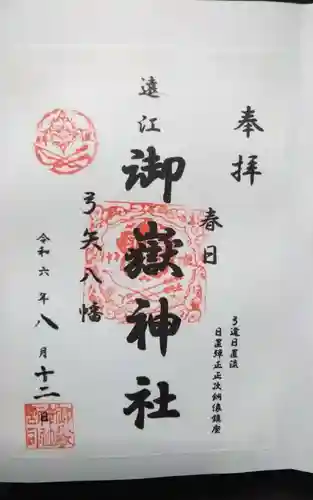 奉拝
春日
弓道日置流
日置弾正正次納像鎮座
遠江
御嶽神社
弓矢八幡
令和六年八月十二日